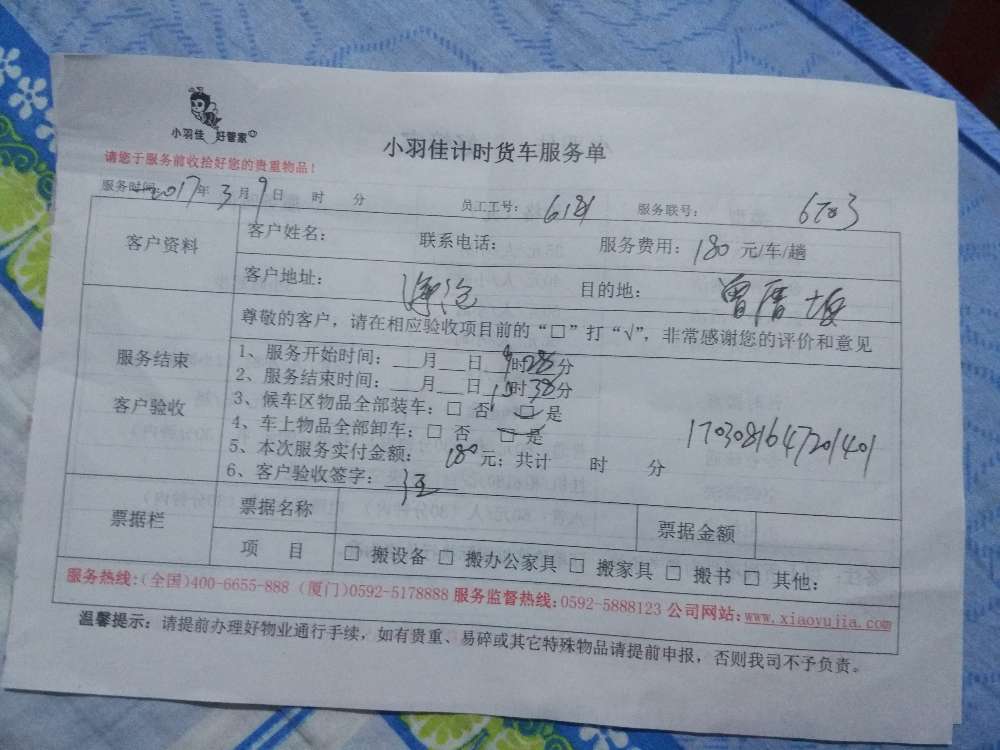 小羽佳 好管家
小羽佳计时货车服务单
请您于服务前收拾好您的贵重物品！
服务时间：2017年3月9日 时 分 员工工号： 服务联号： 6783
客户资料
客户姓名： 联系电话： 服务费用：180 元/车/趟
客户地址：海沧 目的地：曾厝垵
服务结束
客户验收
尊敬的客户，请在相应验收项目前的“□”打“√”，非常感谢您的评价和意见
1、服务开始时间：___月___日 9时28分
2、服务结束时间：___月___日 时38分
3、候车区物品全部装车：□ 否 □ 是
4、车上物品全部卸车：□ 否 □ 是
5、本次服务实付金额：180元；共计 时 分
6、客户验收签字：汪
1703081647201401
票据栏
票据名称 票据金额
项 目 □ 搬设备 □ 搬办公家具 □ 搬家具 □ 搬书 □ 其他：
服务热线：(全国)400-6655-888 (厦门)0592-5178888 服务监督热线：0592-5888123 公司网站：www.xiaoyujia.com
温馨提示：请提前办理好物业通行手续，如有贵重、易碎或其它特殊物品请提前申报，否则我司不予负责。